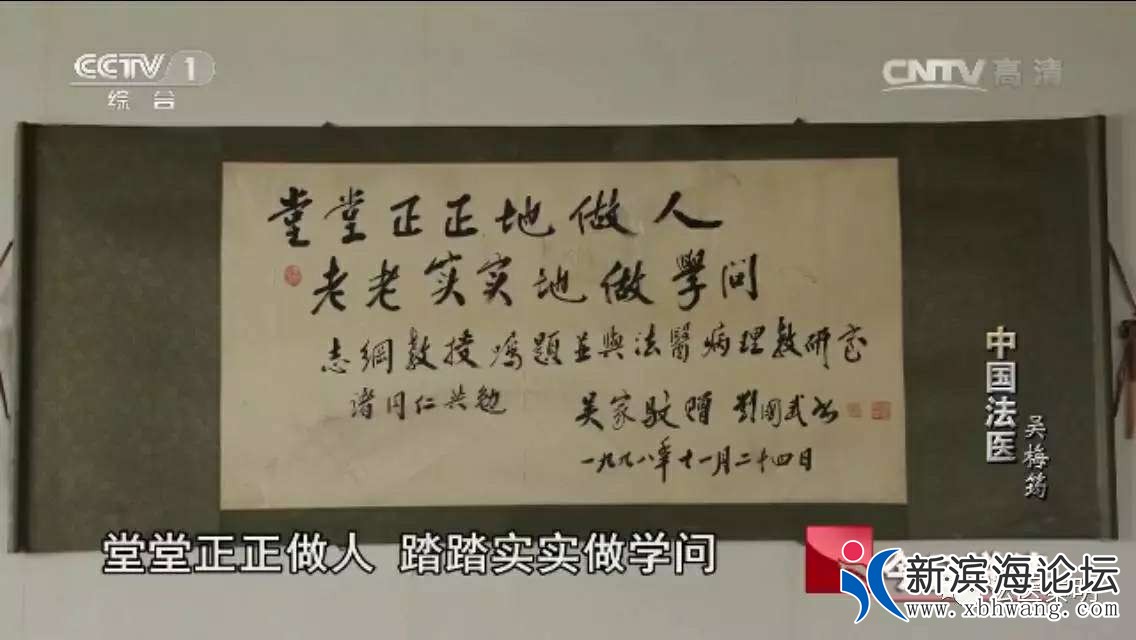 CCTV 1
综合
CNTV 高清
堂堂正正地做人
老老实实地做學问
志綱教授嘱題並與法醫病理教研室
诸同仁共勉
吴家駁贈 劉國武书
一九九八年十一月二十四日
中国法医
吴梅筠
堂堂正正做人 踏踏实实做学问
新滨海论坛
www.xbhwang.com